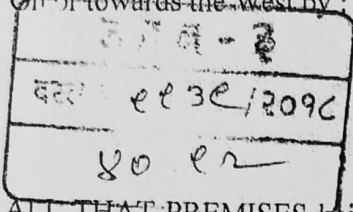 On or towards the West by :
दस्त ९९३९/२०१८
४० ९२
ALL THAT PREMISES